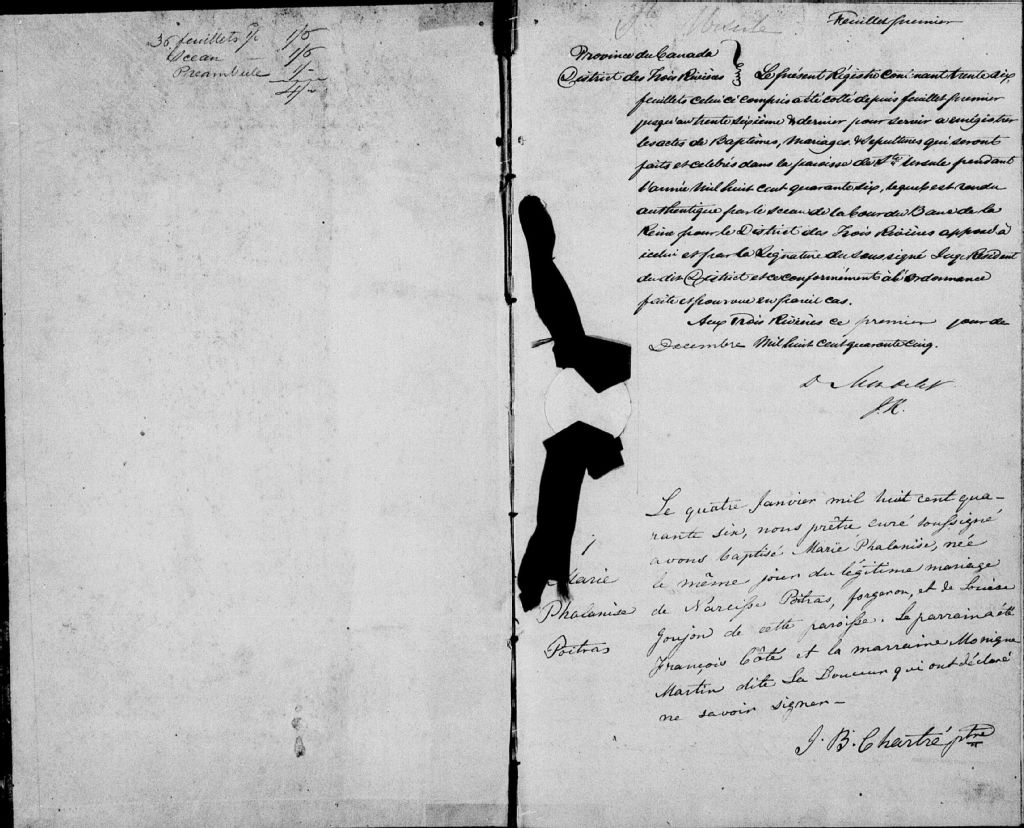 36 feuillets 1/5
Sceau — 1/6
Préambule 1/-
4/-
Ste Ursule
Feuillet premier
Province du Canada
District des Trois Rivières
Le présent Régistre contenant trente six
feuillets celui ci compris a été cotté depuis feuillet premier
jusqu'au trente sixième & dernier pour servir a enrégistrer
les actes de Baptêmes, Mariages & Sepultures qui seront
faits et celebrés dans la paroisse de Ste Ursule pendant
l'année Mil huit cent quarante six, lequel est rendu
authentique par le sceau de la Cour du Banc de la
Reine pour le District des Trois Rivières apposé à
icelui et par la Signature du soussigné Juge Résident
du dit District et ce conformément à l'ordonnance
faite et pourvue en pareil cas.
Aux Trois Rivières ce premier jour de
Décembre Mil huit cent quarante cinq.
D Mondelet
J.R.
Le quatre Janvier mil huit cent qua-
rante six, nous prêtre curé soussigné
avons baptisé Marie Phalanise, née
le même jour du légitime mariage
de Narcisse Poitras, forgeron, et de Louise
Goujon de cette paroisse. Le parrain a été
François Côté et la marraine Monique
Martin dite La Douceur qui ont déclaré
ne savoir signer —
J. B. Chartré ptre
1
Marie
Phalanise
Poitras